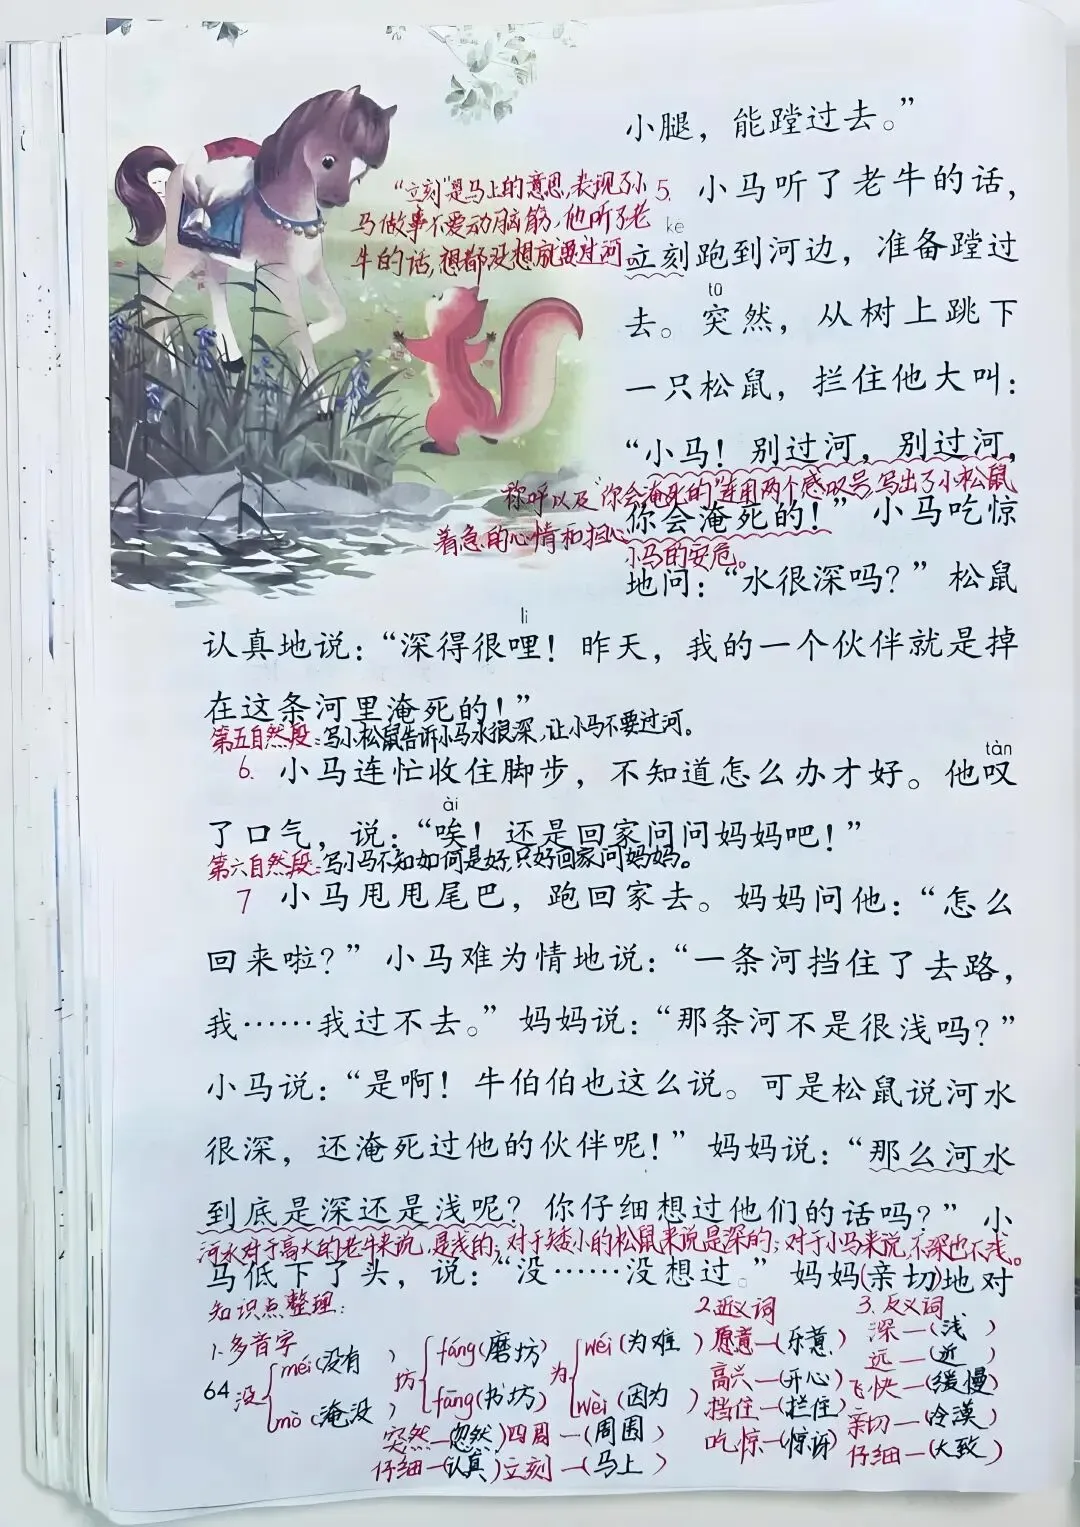 小腿，能蹚过去。”
“立刻”是马上的意思，表现了小
马做事不爱动脑筋，他听了老
牛的话，想都没想就要过河。
5. 小马听了老牛的话，
kè
立刻跑到河边，准备蹚过
tū
去。突然，从树上跳下
一只松鼠，拦住他大叫：
“小马！别过河，别过河，
称呼以及“你会淹死的”连用两个感叹号，写出了小松鼠
你会淹死的！”小马吃惊
着急的心情和担心
小马的安危。
地问：“水很深吗？”松鼠
li
认真地说：“深得很哩！昨天，我的一个伙伴就是掉
在这条河里淹死的！”
第五自然段：写小松鼠告诉小马水很深，让小马不要过河。
tàn
6. 小马连忙收住脚步，不知道怎么办才好。他叹
ài
了口气，说：“唉！还是回家问问妈妈吧！”
第六自然段：写小马不知如何是好，只好回家问妈妈。
7 小马甩甩尾巴，跑回家去。妈妈问他：“怎么
回来啦？”小马难为情地说：“一条河挡住了去路，
我……我过不去。”妈妈说：“那条河不是很浅吗？”
小马说：“是啊！牛伯伯也这么说。可是松鼠说河水
很深，还淹死过他的伙伴呢！”妈妈说：“那么河水
到底是深还是浅呢？你仔细想过他们的话吗？”小
河水对于高大的老牛来说，是浅的；对于矮小的松鼠来说是深的；对于小马来说，不深也不浅。
马低下了头，说：“没……没想过。”妈妈(亲切)地对
知识点整理：
1、多音字
没 méi(没有) mò(淹没)
坊 fáng(磨坊) fāng(书坊)
为 wéi(为难) wèi(因为)
突然—(忽然) 四周—(周围)
仔细—(认真) 立刻—(马上)
2.近义词
愿意—(乐意)
高兴—(开心)
挡住—(拦住)
吃惊—(惊讶)
3、反义词
深—(浅)
远—(近)
飞快—(缓慢)
亲切—(冷漠)
仔细—(大致)
64